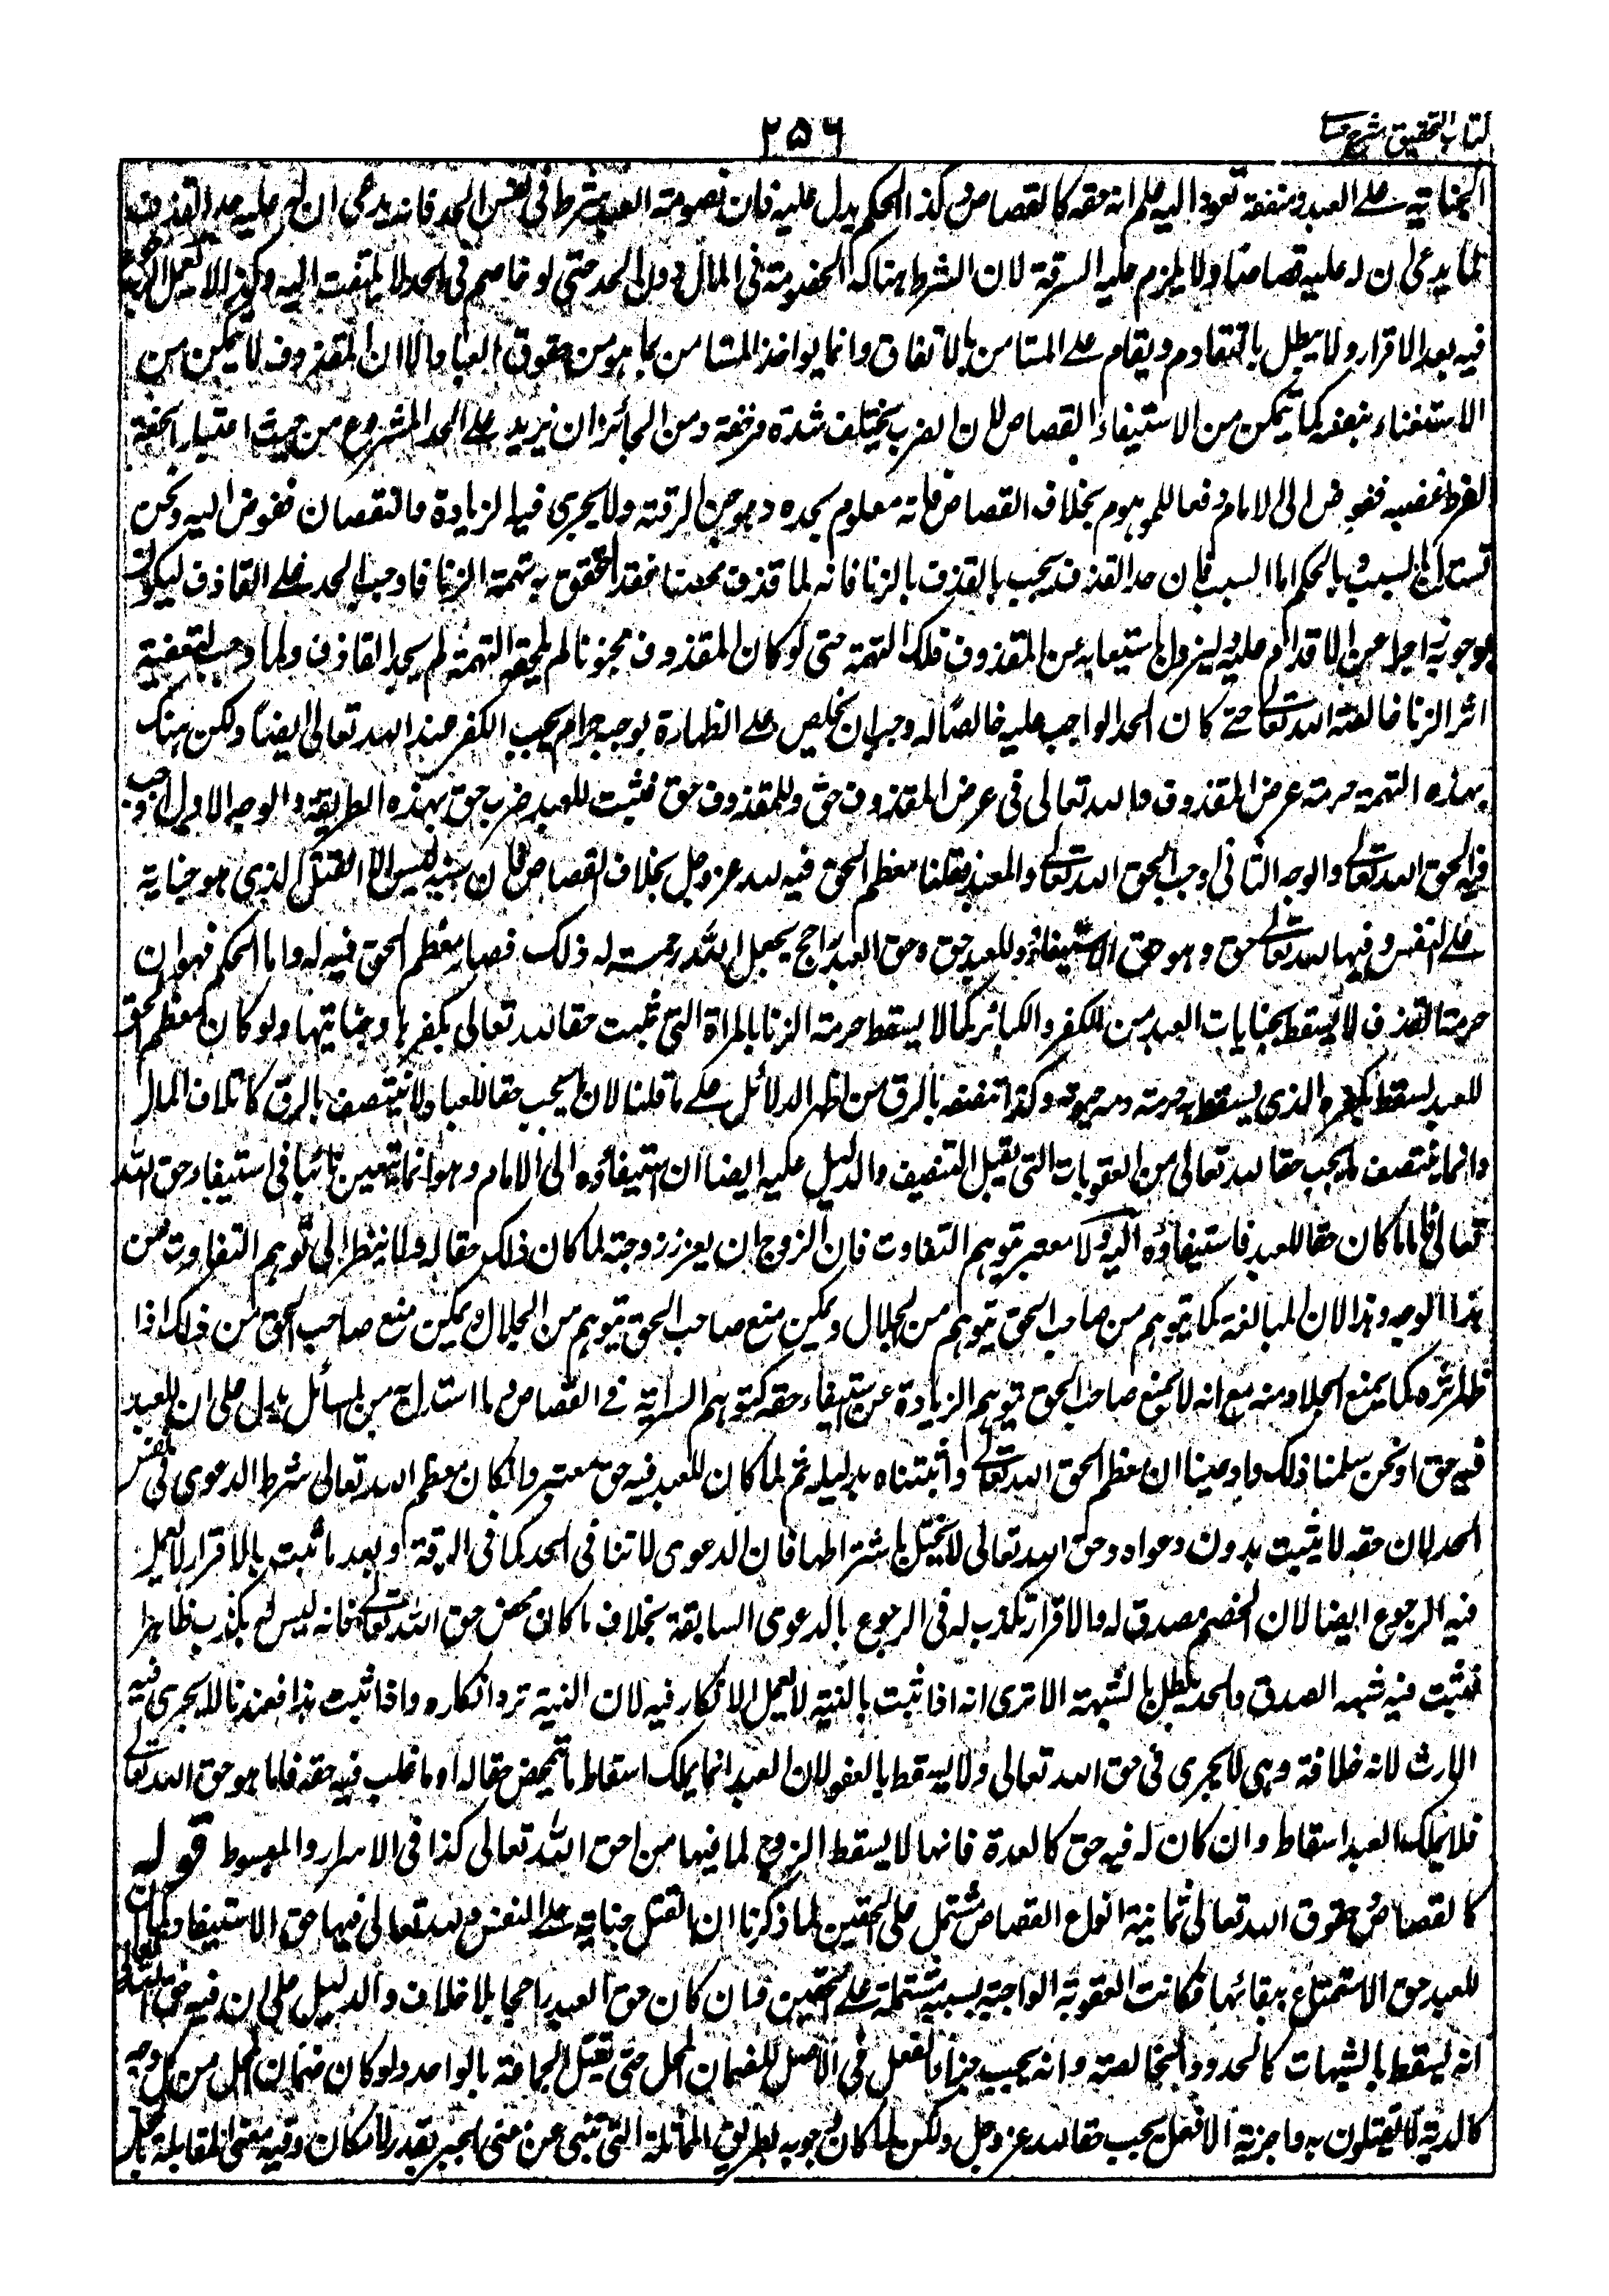 كتاب التحقيق شرح حسامى
٢٥٦
الجناية على العبد ومنفعة تعود اليه علم انه حقه كالقصاص وكذا الحكم يدل عليه فان خصومة العبد شرط فى نفس الحد فانه يدعى ان لى عليه حد القذف
كما يدعى ان له عليه قصاصا ولا يلزم عليه السرقة لان الشرط هناك الخصومة فى المال دون الحد حتى لو خاصم فى الحد لا يلتفت اليه وكذا لا يعمل الرجوع
فيه بعد الاقرار ولا يبطل بالتقادم ويقام على المستامن بالاتفاق وانما يواخذ المستامن بما هو من حقوق العباد الا ان المقذوف لا يتمكن من
الاستيفاء بنفسه كما يتمكن من الاستيفاء القصاص لان الضرب يختلف شدة وخفة ومن الجائز ان يزيد على الحد المشروع من حيث اعتبار الخفة
لفرط غضبه ففوض الى الامام دفعا للموهوم بخلاف القصاص فانه معلوم بحده وهو جز الرقبة ولا يجرى فيه الزيادة والنقصان ففوض اليه ونحن
نستدل بالسبب وبالحكم اما السبب فلان حد القذف يجب بالقذف بالزنا فانه لما قذف محصنا فقد الحق به تهمة الزنا فاوجب الحد على القاذف ليكون
وجوبه زاجرا عن الاقدام عليه وليزول باستيفائه عن المقذوف تلك التهمة حتى لو كان المقذوف مجنونا لم يلحقه التهمة لم يحد القاذف ولما وجب لتعفية
اثر الزنا خالصة لله تعالى حتى كان الحد الواجب عليه خالصا له وجب ان يخلص على الظهارة بوجوب حرام يجب الكفر عند الله تعالى ايضا ولكن هتك
بهذه التهمة حرمة عرض المقذوف ولله تعالى فى عرض المقذوف حق وللمقذوف حق فثبت للعبد ضرب حق بهذه الطريقة والوجه الاول اوجب
فيه الحق لله تعالى والوجه الثانى اوجب الحق لله تعالى وللعبد فقلنا معظم الحق فيه لله عز وجل بخلاف القصاص فان سببه ليس الا القتل الذى هو جناية
على النفس وفيها لله تعالى حق وهو حق الاستيفاء وللعبد حق وحق العبد راجح بجعل الله رحمة له ذلك فصار معظم الحق فيه له واما الحكم فهو ان
حرمة القذف لا يسقط بجنايات العبد من الكفر والكبائر كما لا يسقط حرمة الزنا بالمراة التى ثبتت حقا لله تعالى بكفرها وجنايتها ولو كان معظم الحق
للعبد لسقط بكفره الذى يسقط به حرمة دمه وكذا تنصفه بالرق من اظهر الدلائل على ما قلنا لان ما يجب حقا للعباد لا يتنصف بالرق كاتلاف المال
وانما يتنصف ما يجب حقا لله تعالى من العقوبات التى يقبل التنصيف والدليل عليه ايضا ان استيفاؤه الى الامام وهو انما يتعين نائبا فى استيفاء حق الله
تعالى فاما ما كان حقا للعبد فاستيفاؤه اليه ولا معتبر بتوهم التفاوت فان الزوج ان يعزر زوجته لما كان ذلك حقا له ولا ينظر الى توهم التفاوت من
هذا الوجه وهذا لان المبالغة كما يتوهم من صاحب الحق يتوهم من الجلاد ويمكن منع صاحب الحق من ذلك اذا
ظهر اثره كما يمنع الجلاد منه مع انه لا يمنع صاحب الحق بتوهم الزيادة عن استيفاء حقه كتوهم السراية فى القصاص وما استدل به من المسائل يدل على ان للعبد
فيه حق ونحن سلمنا ذلك وادعينا ان معظم الحق لله تعالى واثبتناه بدليله ثم لما كان للعبد فيه حق معتبر وان كان معظمه لله تعالى شرط الدعوى فى نفس
الحد لان حقه لا يثبت بدون دعواه وحق الله تعالى لا يختل باشتراطها فان الدعوى لا تنافى الحد كما فى السرقة وبعد ما ثبت بالاقرار لا يعمل
فيه الرجوع ايضا لان الخصم مصدق له والاقرار تكذب له فى الرجوع بالدعوى السابقة بخلاف ما كان محض حق الله تعالى فانه ليس له مكذب ظاهرا
فيثبت فيه شبهة الصدق والحد يبطل بالشبهة الا ترى انه اذا ثبت بالبينة لا يعمل الانكار فيه لان البينة ترد انكاره واذا ثبت هذا فعندنا لا يجرى فيه
الارث لانه خلافة وهى لا يجرى فى حق الله تعالى ولا يسقط بالعفو لان العبد انما يملك اسقاط ما تمحض حقا له او ما غلب فيه حقه فاما ما هو حق الله تعالى
فلا يملك العبد اسقاط وان كان له فيه حق كالعدة فانها لا يسقط الزوج لما فيها من حق الله تعالى كذا فى الاسرار والمبسوط قوله
كالقصاص حقوق الله تعالى ثمانية انواع القصاص مشتمل على الحقين لما ذكرنا ان القتل جناية على النفس ولله تعالى فيها حق الاستيفاء كما ان
للعبد حق الاستمتاع ببقائها فكانت العقوبة الواجبة بسببه مشتملة على الحقين وان كان حق العبد راجحا بلا خلاف والدليل على ان فيه حق الله تعالى
انه يسقط بالشبهات كالحدود الخالصة وانه يجب جزاء الفعل فى الاصل لا ضمان المحل حتى يقتل الجماعة بالواحد ولو كان ضمان المحل من كل وجه
كالدية لا يقتلون به واجزية الافعال يجب حقا لله عز وجل ولكن لما كان وجوبه بطريق المماثلة التى تنبئ عن معنى الجبر بقدر الامكان وفيه معنى المقابلة بالمحل